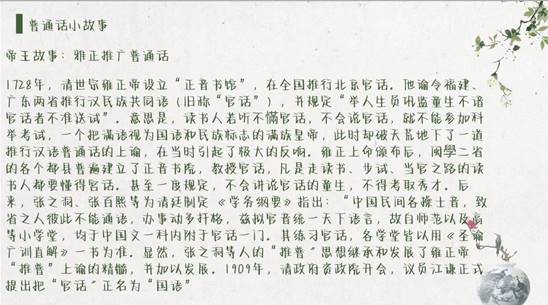 普通话小故事
帝王故事：雍正推广普通话
1728年，清世宗雍正帝设立“正音书馆”，在全国推行北京官话。他谕令福建、
广东两省推行汉民族共同语（旧称“官话”），并规定“举人生员巩监童生不谙
官话者不准送试”。意思是，读书人若听不懂官话，不会说官话，就不能参加科
举考试，一个把满语视为国语和民族标志的满族皇帝，此时却破天荒地下了一道
推行汉语普通话的上谕，在当时引起了极大的反响。雍正上命颁布后，闽粤二省
的各个都县普遍建立了正音书院，教授官话，凡是走读书、步试、当官之路的读
书人都要懂得官话。甚至一度规定，不会讲说官话的童生，不得考取秀才。后
来，张之洞、张百熙等为清廷制定《学务纲要》指出：“中国民间各操土音，致
省之人彼此不能通语，办事动多扞格，兹拟官音统一天下语言，故自师范以及高
等小学堂，均于中国文一科内附官话一门。其练习官话，各学堂皆以用《圣谕
广训直解》一书为准。显然，张之洞等人的“推普”思想继承和发展了雍正帝
“推普”上谕的精髓，并加以发展。1909年，清政府资政院开会，议员江谦正式
提出把“官话”正名为“国语”